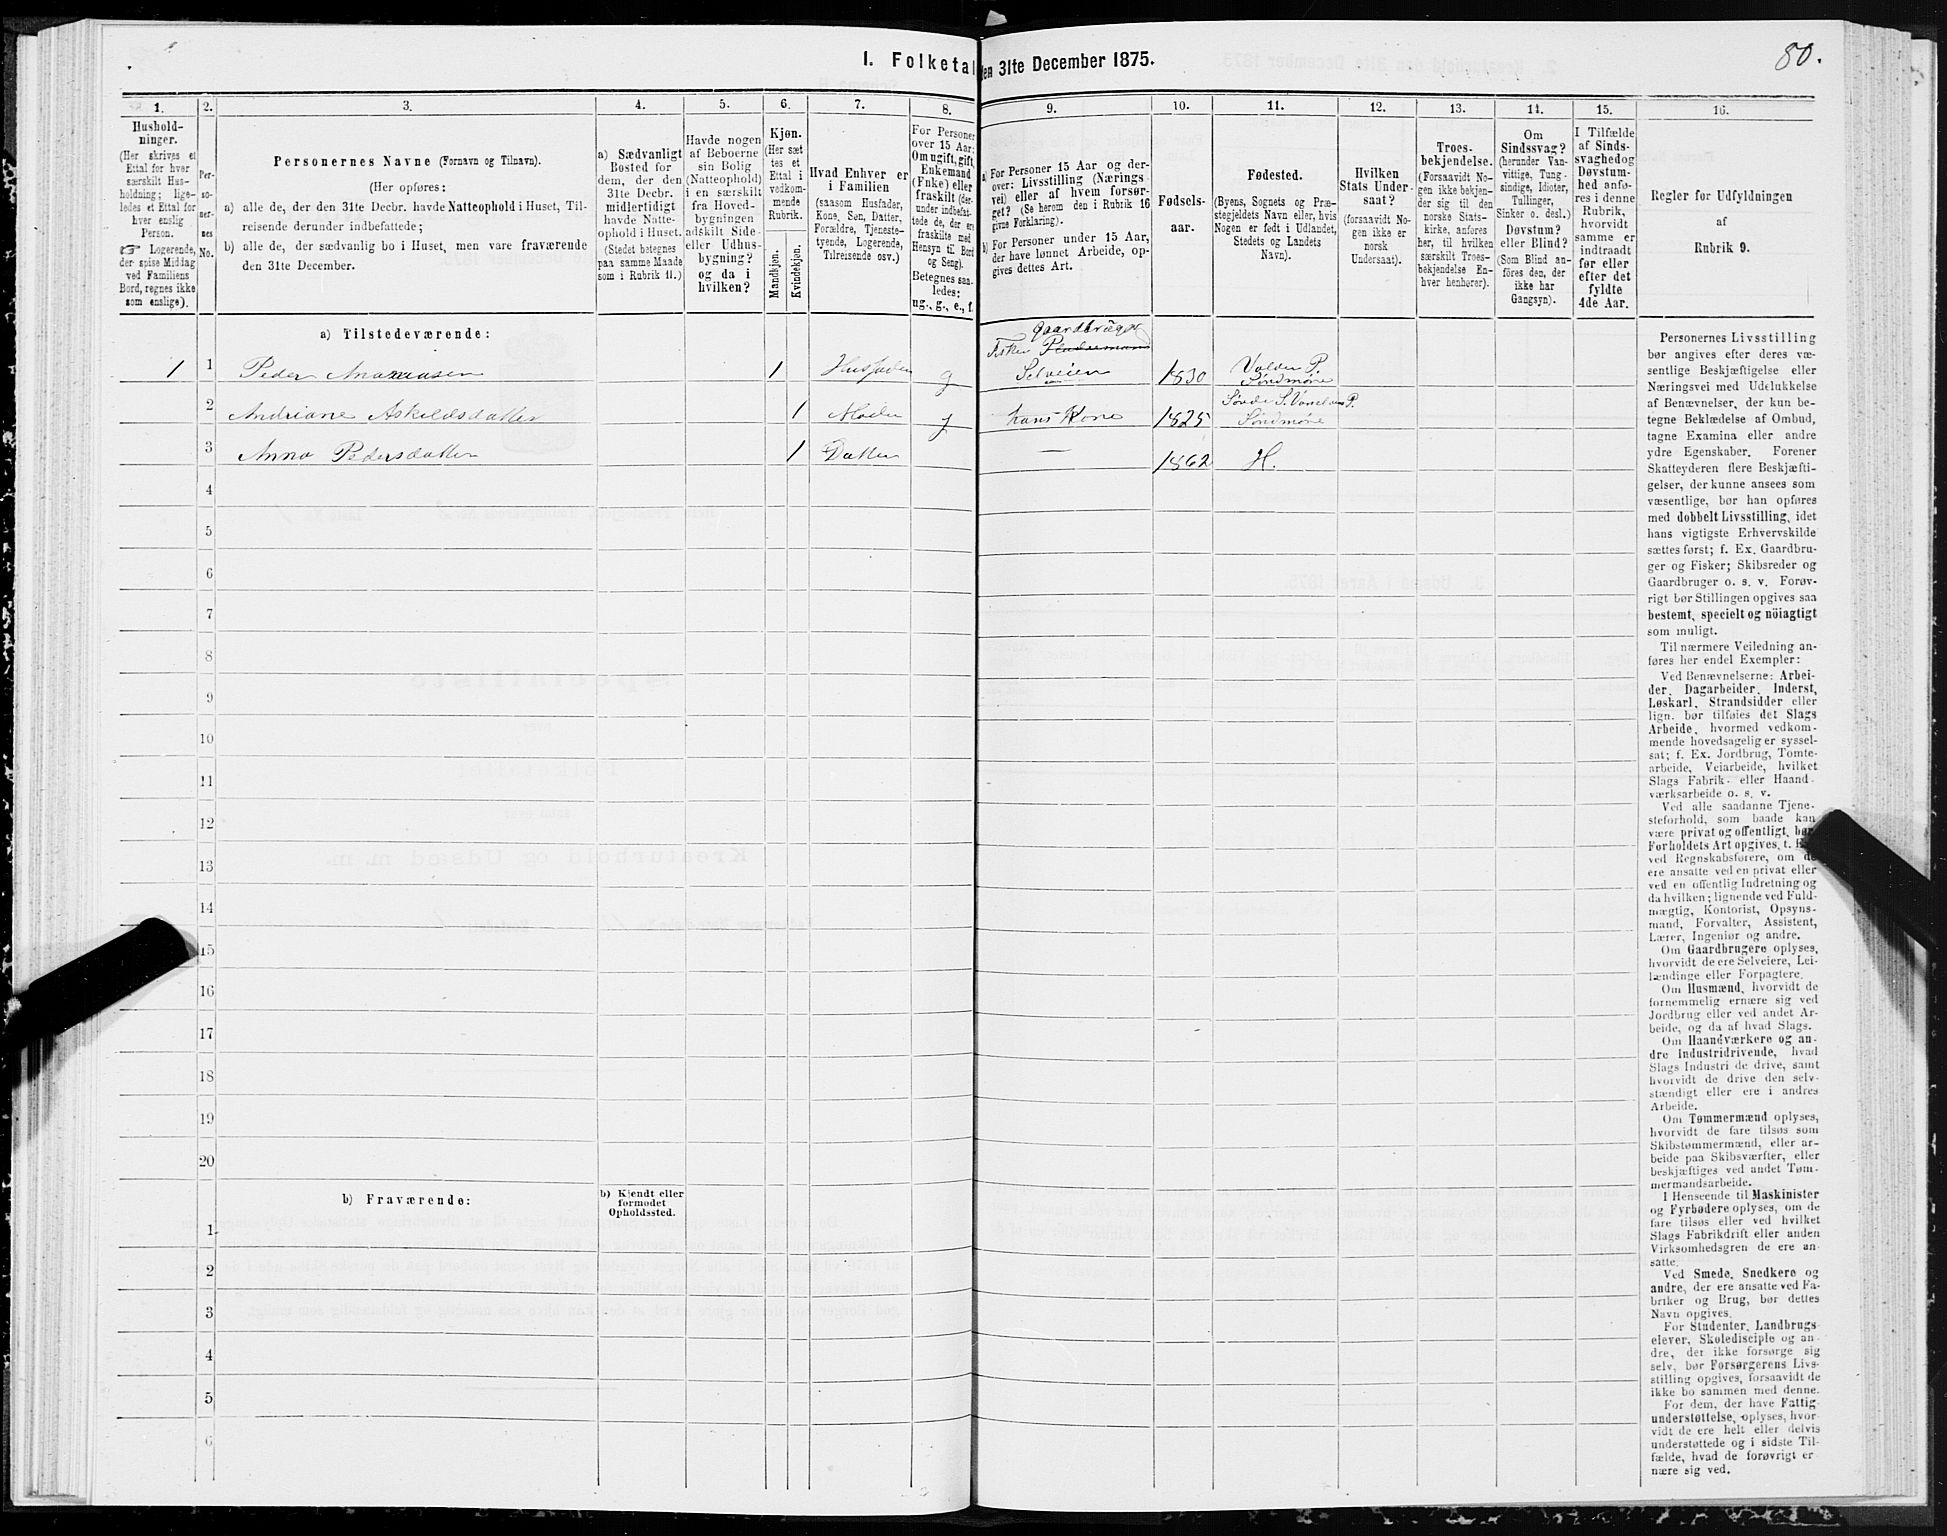 80.
I. Folketal den 31te December 1875.
1. 2. 3. 4. 5. 6. 7. 8. 9. 10. 11. 12. 13. 14. 15. 16.
Hushold-
ninger.
(Her skrives et
Ettal for hver
særskilt Hus-
holdning; lige-
ledes et Ettal for
hver enslig
Person.
☞ Logerende,
der spise Middag
ved Familiens
Bord, regnes ikke
som enslige).
Per-
so-
ner-
nes
No.
Personernes Navne (Fornavn og Tilnavn).
(Her opføres:
a) alle de, der den 31te Decbr. havde Natteophold i Huset, Til-
reisende derunder indbefattede;
b) alle de, der sædvanlig bo i Huset, men vare fraværende
den 31te December.
a) Sædvanligt
Bosted for
dem, der den
31te Decbr.
midlertidigt
havde Natte-
ophold i Huset.
(Stedet betegnes
paa samme Maade
som i Rubrik 11.)
Havde nogen
af Beboerne
sin Bolig
(Natteophold)
i en særskilt
fra Hoved-
bygningen
adskilt Side-
eller Udhus-
bygning?
og da i
hvilken?
Kjøn.
(Her sæt
tes et
Ettal i
vedkom-
mende
Rubrik.
Mandkjøn.
Kvindekjøn.
Hvad Enhver er
i Familien
(saasom Husfader,
Kone, Søn, Datter,
Forældre, Tjeneste-
tyende, Logerende,
Tilreisende osv.)
For Personer
over 15 Aar:
Om ugift, gift,
Enkemand
(Enke) eller
fraskilt (der-
under indbefat-
tede de, der ere
fraskilte med
Hensyn til Bord
og Seng).
Betegnes saa-
ledes:
ug., g., e., f.
a) For Personer 15 Aar og der-
over: Livsstilling (Nærings-
vei) eller af hvem forsør-
get? (Se herom den i Rubrik 16
givne Forklaring).
b) For Personer under 15 Aar,
der have lønnet Arbeide, op-
gives dettes Art.
Fødsels-
aar.
Fødested.
(Byens, Sognets og Præ-
stegjeldets Navn eller, hvis
Nogen er født i Udlandet,
Stedets og Landets
Navn).
Hvilken
Stats Under-
saat?
(forsaavidt No-
gen ikke er
norsk
Undersaat).
Troes-
bekjendelse.
(Forsaavidt No-
gen ikke bekjen-
der sig til den
norske Stats-
kirke, anføres
her, til hvilken
særskilt Troes-
bekjendelse En-
hver henhører).
Om
Sindssvag?
(herunder Van-
vittige, Tung-
sindige, Idioter,
Tullinger,
Sinker o. desl.)
Døvstum?
eller Blind?
(Som Blind an-
føres den, der
ikke har
Gangsyn).
I Tilfælde
af Sinds-
svaghedog
Døvstum-
hed anfø-
res i denne
Rubrik,
hvorvidt
samme er
indtraadt
før eller
efter det
fyldte
4de Aar.
Regler for Udfyldningen
af
Rubrik 9.
a) Tilstedeværende:
Gaardbruger
Fisker
1 1 Peder 1 Husfader g Selveier 1830 Volden P.
Søndmøre
2 Andriane Askildsdatter 1 Moder g hans Kone 1825
Søndmøre
3 Anna Pedersdatter 1 Datter — 1862 H.
4
5
6
7
8
9
10
11
12
13
14
15
16
17
18
19
20
b) Fraværende:
b) Kjendt eller
formodet
Opholdssted.
1
2
3
4
5
6
Personernes Livsstilling
bør angives efter deres væ-
sentlige Beskjæftigelse eller
Næringsvei med Udelukkelse
af Benævnelser, der kun be-
tegne Beklædelse af Ombud,
tagne Examina eller andre
ydre Egenskaber. Forener
Skatteyderen flere Beskjæfti-
gelser, der kunne ansees som
væsentlige, bør han opføres
med dobbelt Livsstilling, idet
hans vigtigste Erhvervskilde
sættes først; f. Ex. Gaardbru-
ger og Fisker; Skibsreder og
Gaardbruger o. s. v. Forøv-
rigt bør Stillingen opgives saa
bestemt, specielt og nöiagtigt
som muligt.
Til nærmere Veiledning an-
føres her endel Exempler:
Ved Benævnelserne: Arbei-
der, Dagarbeider, Inderst,
Løskarl, Strandsidder eller
lign. bør tilføies det Slags
Arbeide, hvormed vedkom-
mende hovedsagelig er syssel-
sat; f. Ex. Jordbrug, Tomte-
arbeide, Veiarbeide, hvilket
Slags Fabrik- eller Haand-
værksarbeide o. s. v.
Ved alle saadanne Tjene-
steforhold, som baade kan
være privat og offentligt, bør
Forholdets Art opgives, t.
ved Regnskabsførere, om de
ere ansatte ved en privat eller
ved en offentlig Indretning og
da hvilken; lignende ved Fuld-
mægtig, Kontorist, Opsyns-
mand, Forvalter, Assistent,
Lærer, Ingeniør og andre.
Om Gaardbrugere oplyses,
hvorvidt de ere Selveiere, Lei-
lændinge eller Forpagtere.
Om Husmænd, hvorvidt de
fornemmelig ernære sig ved
Jordbrug eller ved andet Ar-
beide, og da af hvad Slags.
Om Haandværkere og an-
dre Industridrivende, hvad
Slags Industri de drive, samt
hvorvidt de drive den selv-
stændigt eller ere i andres
Arbeide.
Om Tømmermænd oplyses,
hvorvidt de fare tilsøs som
Skibstømmermænd, eller ar-
beide paa Skibsværfter, eller
beskjæftiges ved andet Tøm-
mermandsarbeide.
I Henseende til Maskinister
og Fyrbødere oplyses, om de
fare tilsøs eller ved hvilket
Slags Fabrikdrift eller anden
Virksomhedsgren de ere an-
satte.
Ved Smede, Snedkere og
andre, der ere ansatte ved Fa-
briker og Brug, bør dettes
Navn opgives.
For Studenter, Landbrugs-
elever, Skoledisciple og an-
dre, der ikke forsørge sig
selv, bør Forsørgerens Livs-
stilling opgives, forsaavidt de
ikke bo sammen med denne.
For dem, der have Fattig-
understøttelse, oplyses, hvor-
vidt de ere helt eller delvis
understøttede og i sidste Til-
fælde, hvad de forøvrigt er-
nære sig ved.